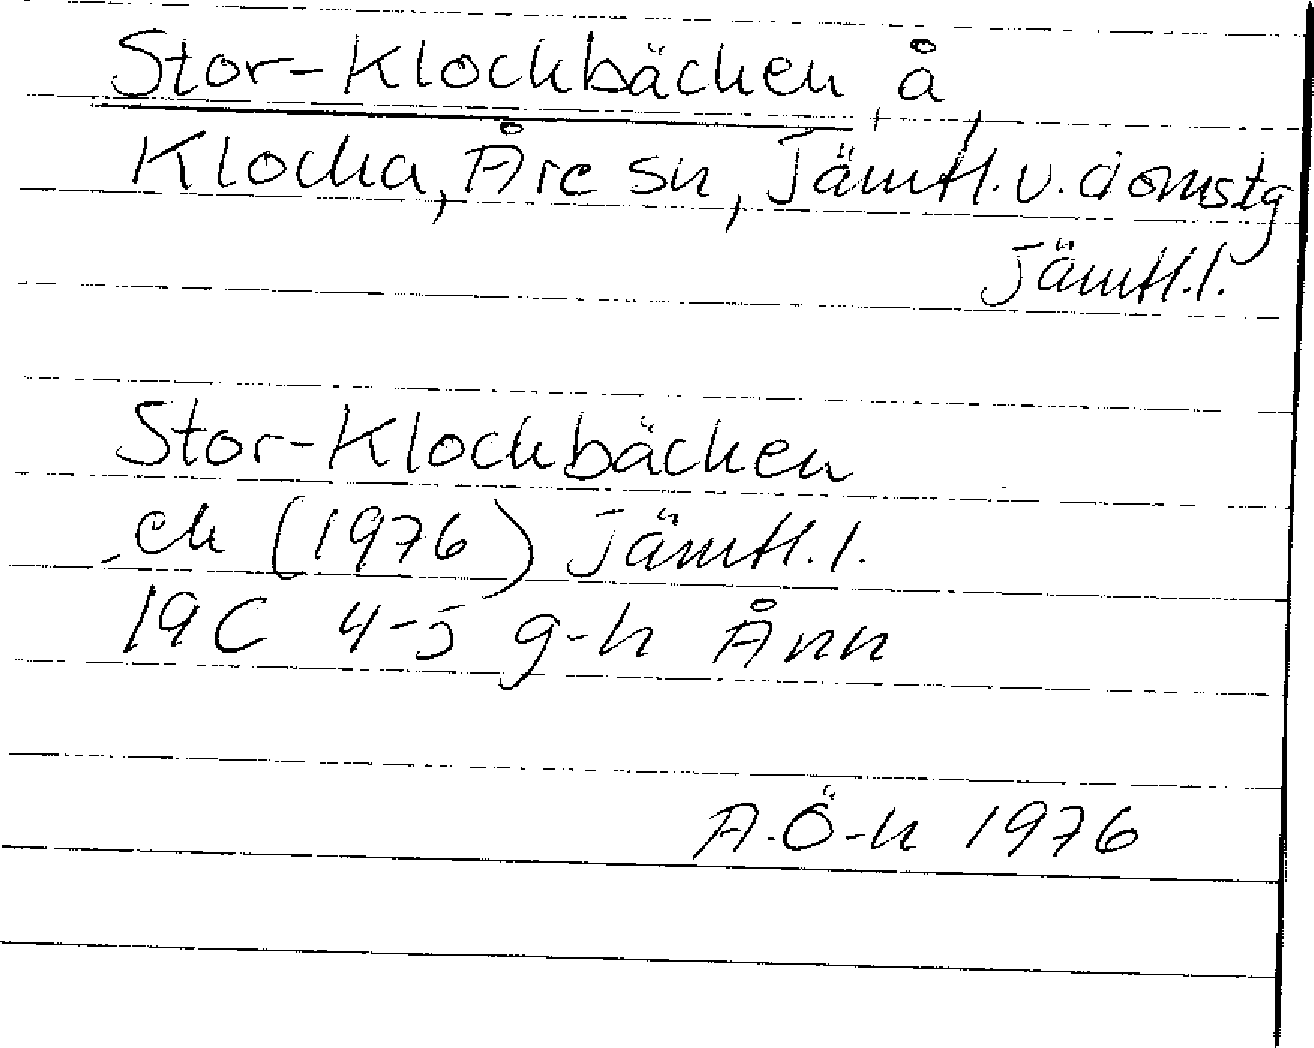 Stor-Klockbäcken, å,
Klocka, Åre sn, Jämtl. v. domstg
Jämtl.l.
Stor-Klockbäcken
ek (1976) Jämtl.l.
19C 4-5 g-h Ånn
A.Ö-n 1976